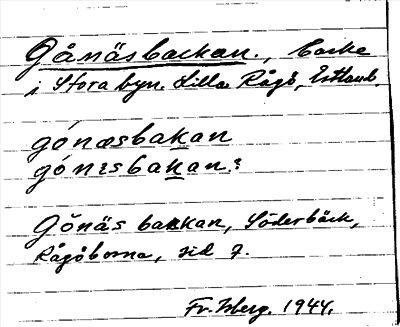 Gånäsbackan., backe
i Stora byn. Lilla Rågö, Estland.
gónæsbakan
gónɪsbakan:
Gŏnäs bakkan, Söderbäck,
Rågöborna, sid 7.
Fr. Isberg. 1944.